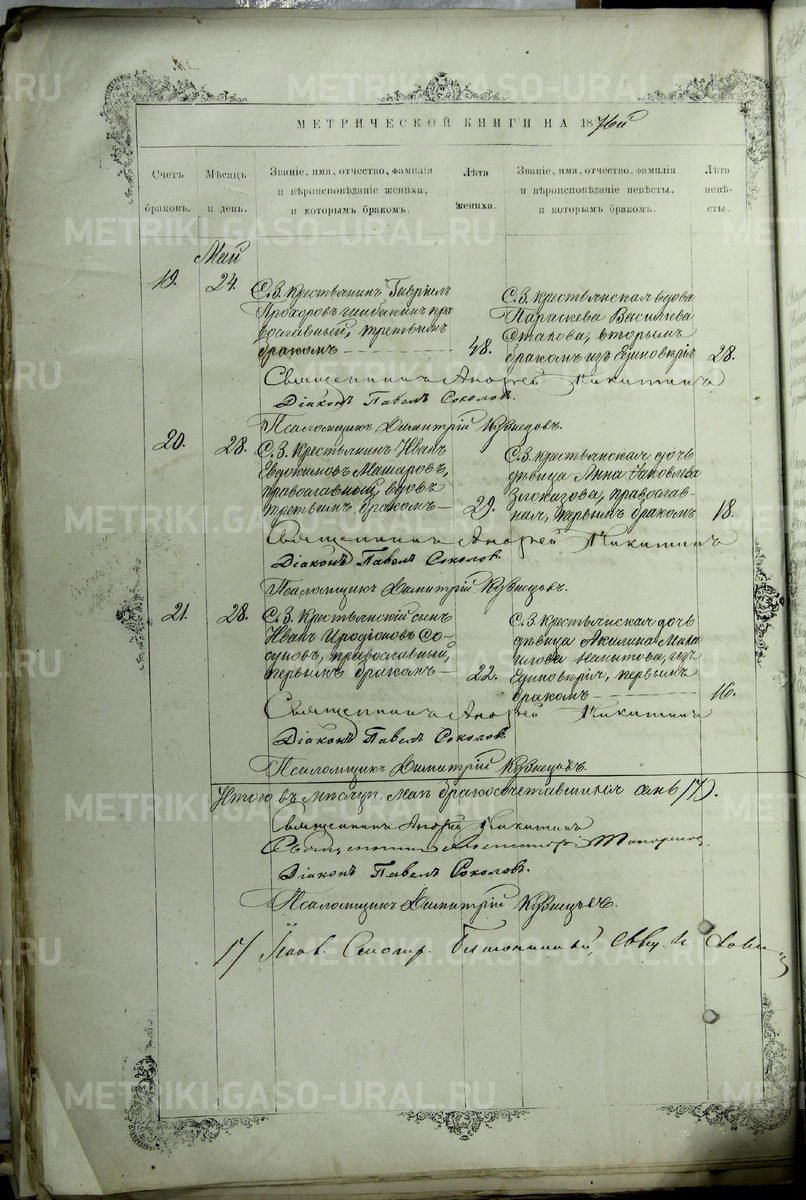 МЕТРИЧЕСКОЙ КНИГИ НА 1876й
Счетъ браковъ.
Мѣсяцъ и день.
Званіе, имя, отчество, фамилія и вѣроисповѣданіе жениха, и которымъ бракомъ.
Лѣта жениха.
Званіе, имя, отчество, фамилія и вѣроисповѣданіе невѣсты, и которымъ бракомъ.
Лѣта невѣсты.
Май
19.
24.
С.З. крестьянинъ Гавріилъ
Прохоровъ пра
вославный, третьимъ
бракомъ
48.
С.З. крестьянская вдова
Параскева Василиева
вторымъ
бракомъ изъ Единовѣрія
28.
Священникъ Андрей Никитинъ
Діаконъ Павелъ Соколов.
Псаломщикъ Димитрій Кузнецовъ.
20.
28.
С.З. крестьянинъ Иванъ
Евдокимовъ Машаровъ,
православный, вдовъ
третьимъ бракомъ
29.
С.З. крестьянская дочь
дѣвица Анна Яковлева
Злоказова, православ-
ная, первымъ бракомъ
18.
Священникъ Андрей Никитинъ
Діаконъ Павелъ Соколов
Псаломщикъ Димитрій Кузнецовъ.
21.
28.
С.З. Крестьянскій сынъ
Иванъ Иродіоновъ Со-
суновъ, православный,
первымъ бракомъ
22.
С.З. Крестьянская дочь
дѣвица Акилина Миха
илова изъ
Единовѣрія, первымъ
бракомъ
16.
Священникъ Андрей Никитинъ
Діаконъ Павелъ Соколов.
Псаломщикъ Димитрій Кузнецовъ.
Итого въ мѣсяцѣ маѣ бракосочетавшихся семь (7).
Священникъ Андрей Никитинъ
Священникъ Топорковъ.
Діаконъ Павелъ Соколовъ.
Псаломщикъ Димитрій Кузнецовъ.
METRIKI.GASO-URAL.RU